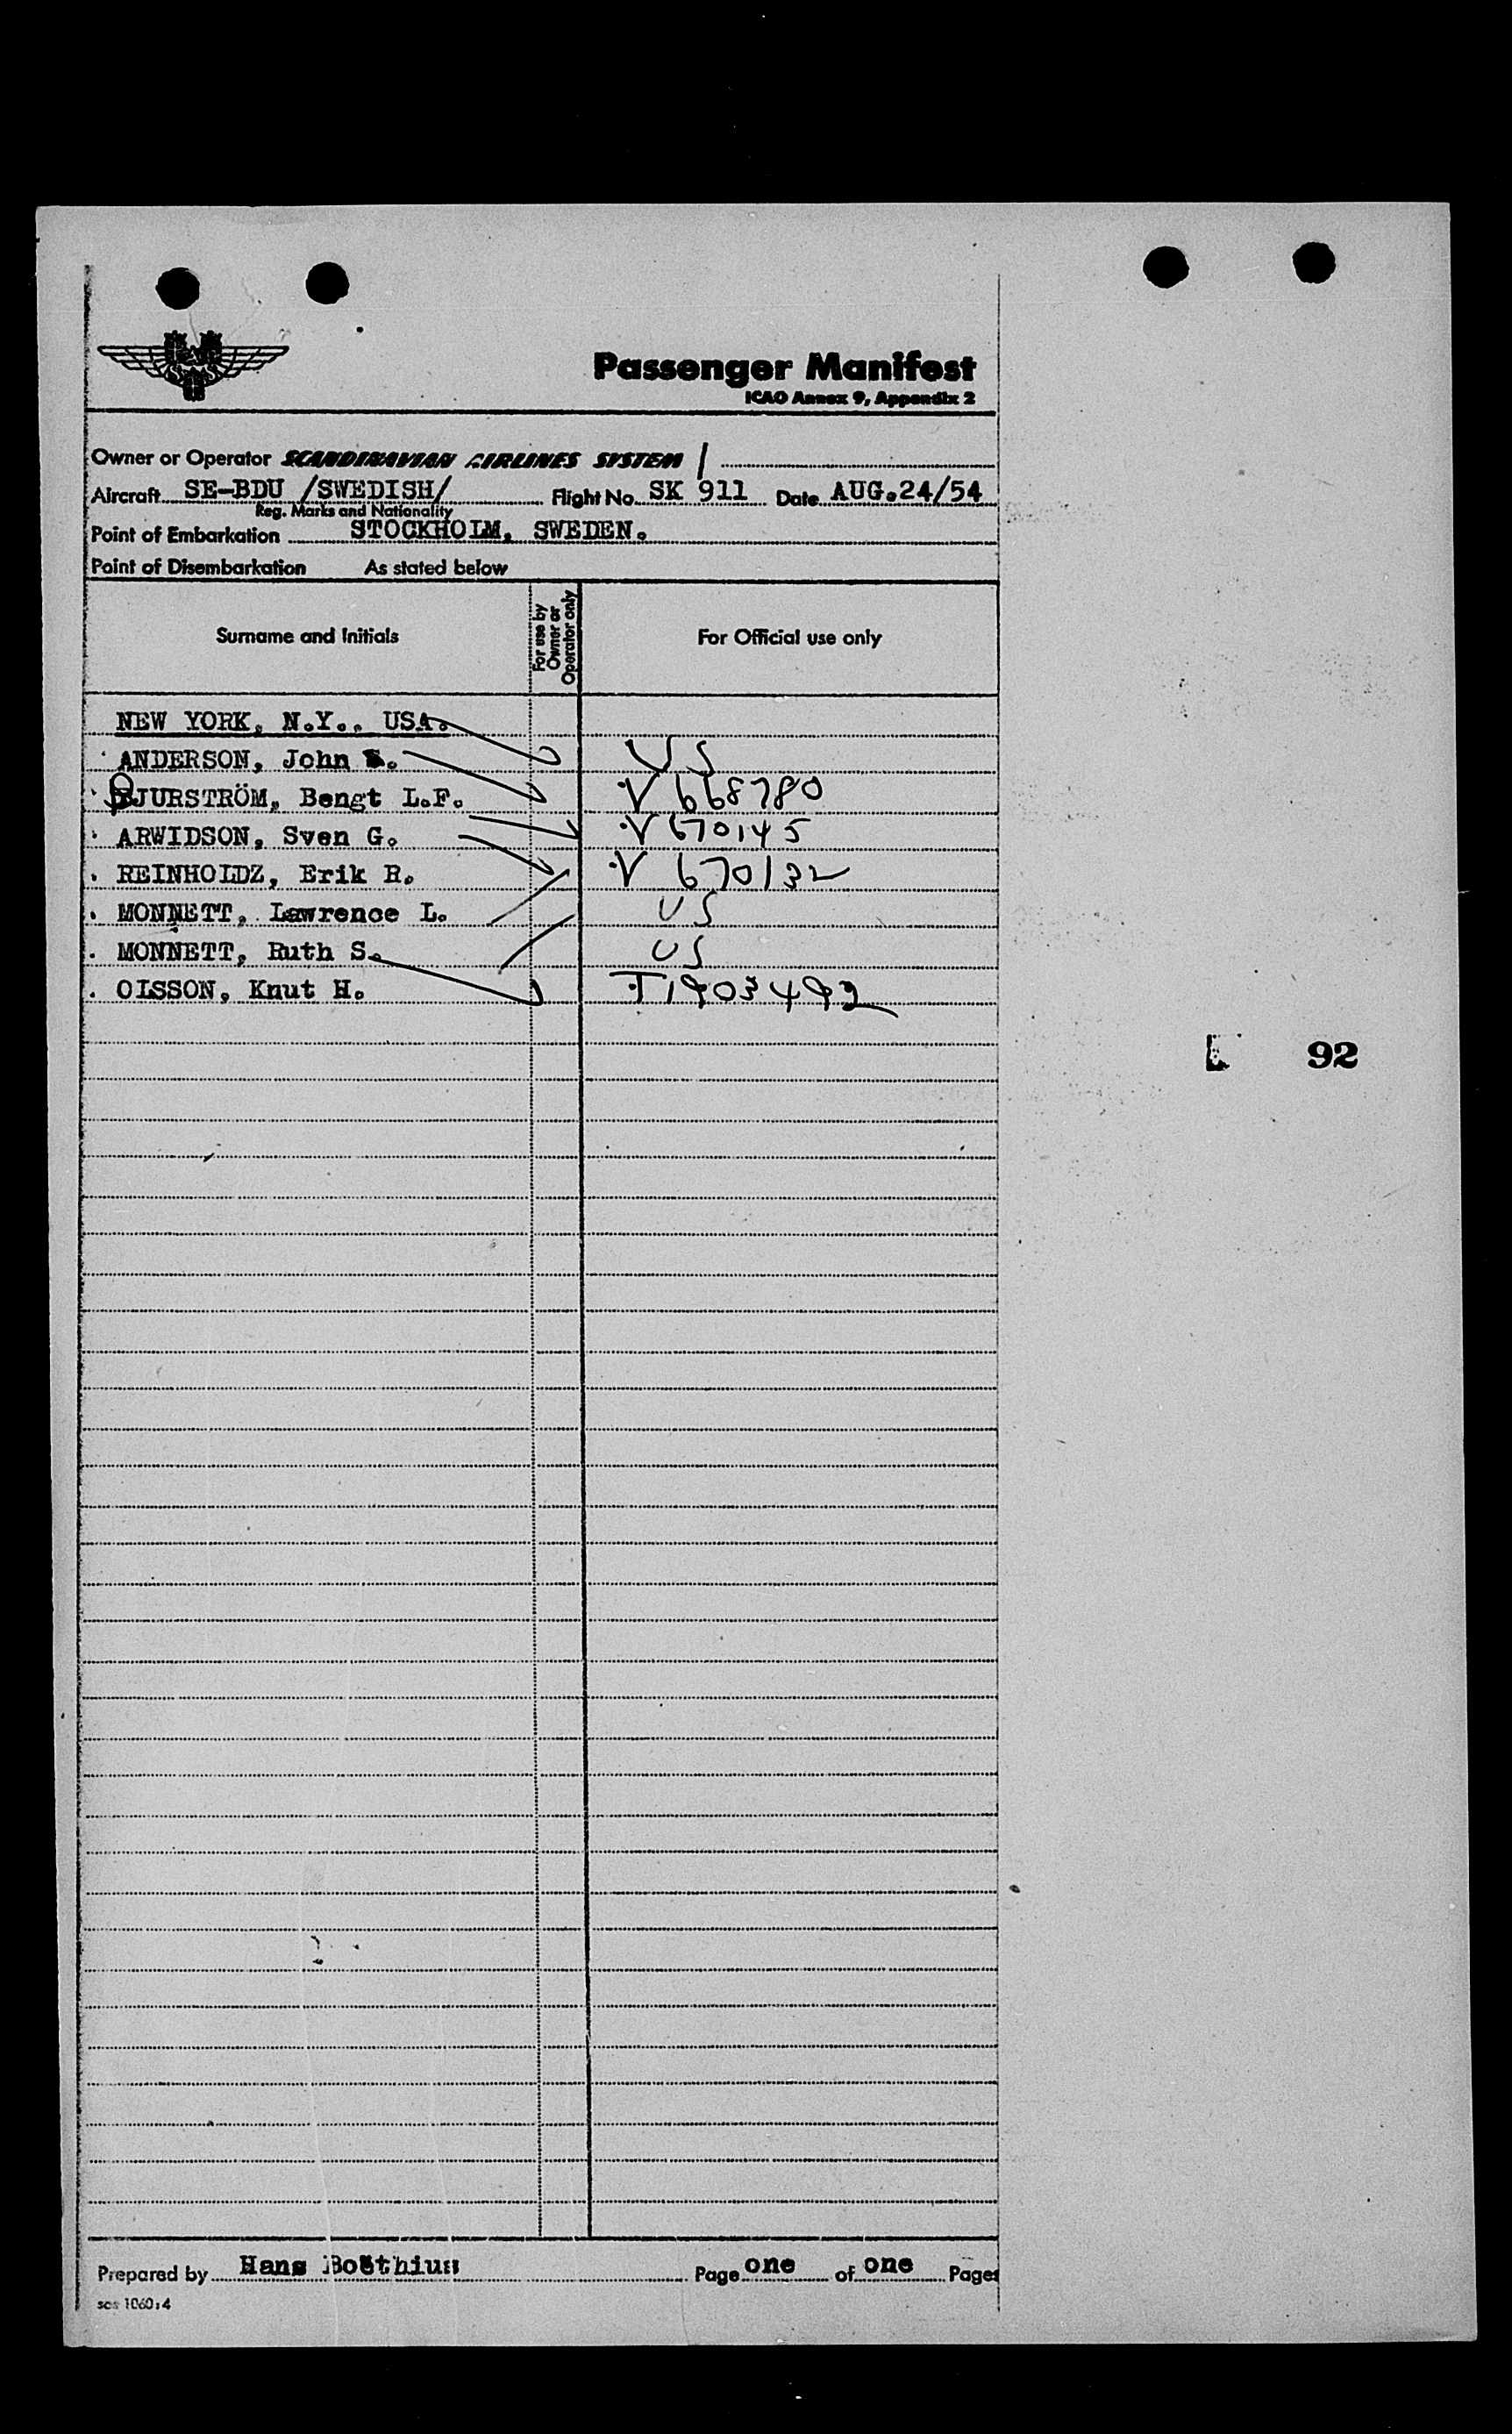 Passenger Manifest
ICAO Annex 9, Appendix 2
Owner or Operator SCANDINAVIAN AIRLINES SYSTEM /
Aircraft SE-BDU /SWEDISH/ Flight No. SK 911 Date AUG.24/54
Reg. Marks and Nationality
Point of Embarkation STOCKHOLM, SWEDEN.
Point of Disembarkation As stated below
Surname and Initials For use by Owner or Operator only For Official use only
NEW YORK, N.Y., USA.
ANDERSON, John US
BJURSTRÖM, Bengt L.F. V 668780
ARWIDSON, Sven G. V 670145
REINHOLDZ, Erik R. V 670132
MONNETT, Lawrence L. US
MONNETT, Ruth S. US
OLSSON, Knut H. T1903492
92
Prepared by Hans Boëthius Page one of one Pages
sas 1060:4